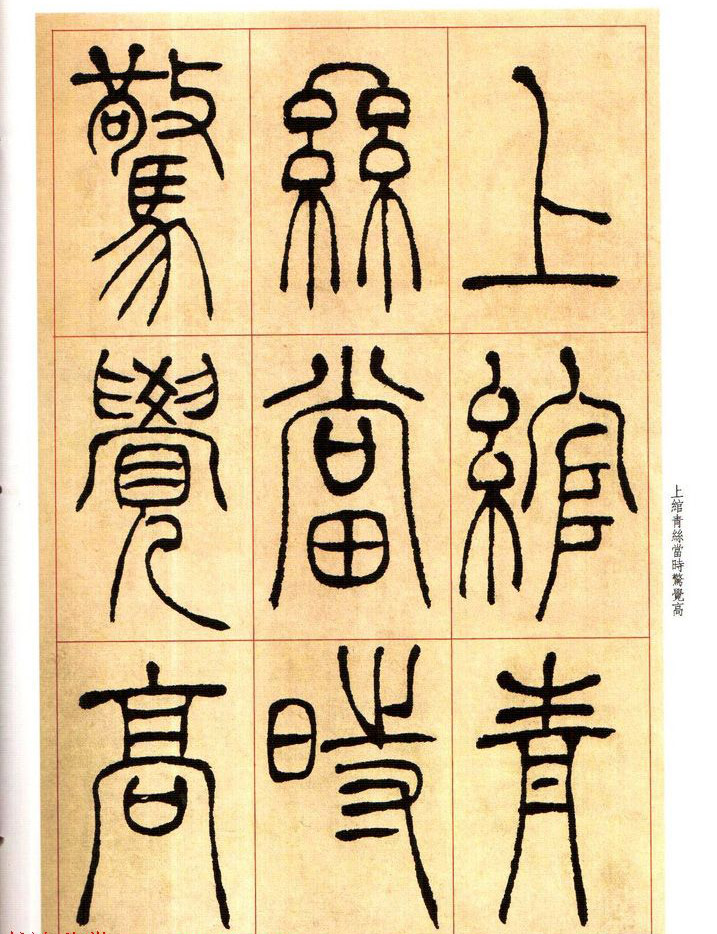 上綰青
絲當時
驚覺高
上綰青絲當時驚覺高